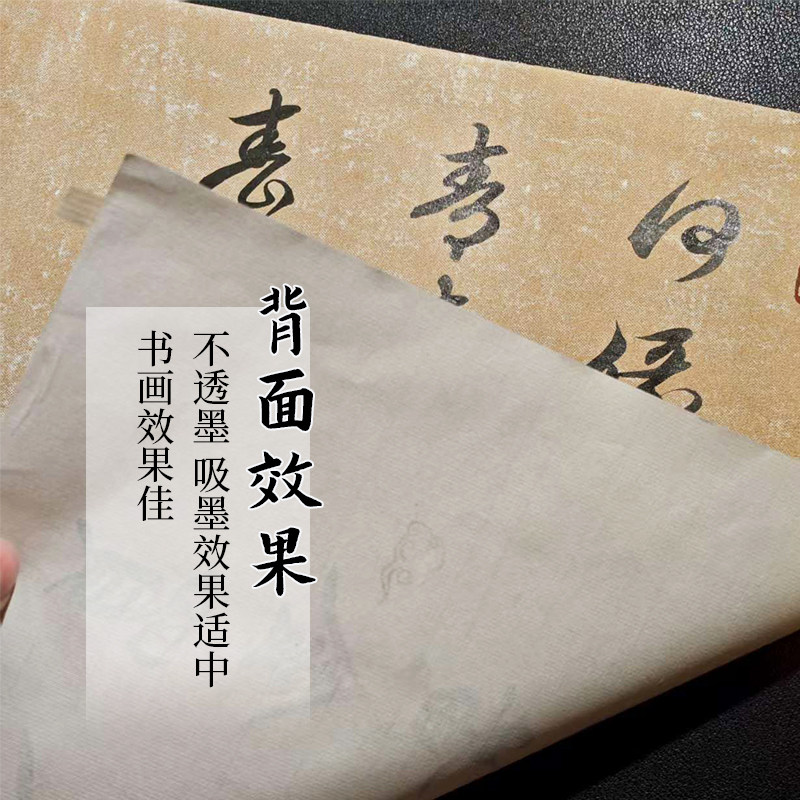 背面效果
不透墨 吸墨效果适中
书画效果佳
何
青
春